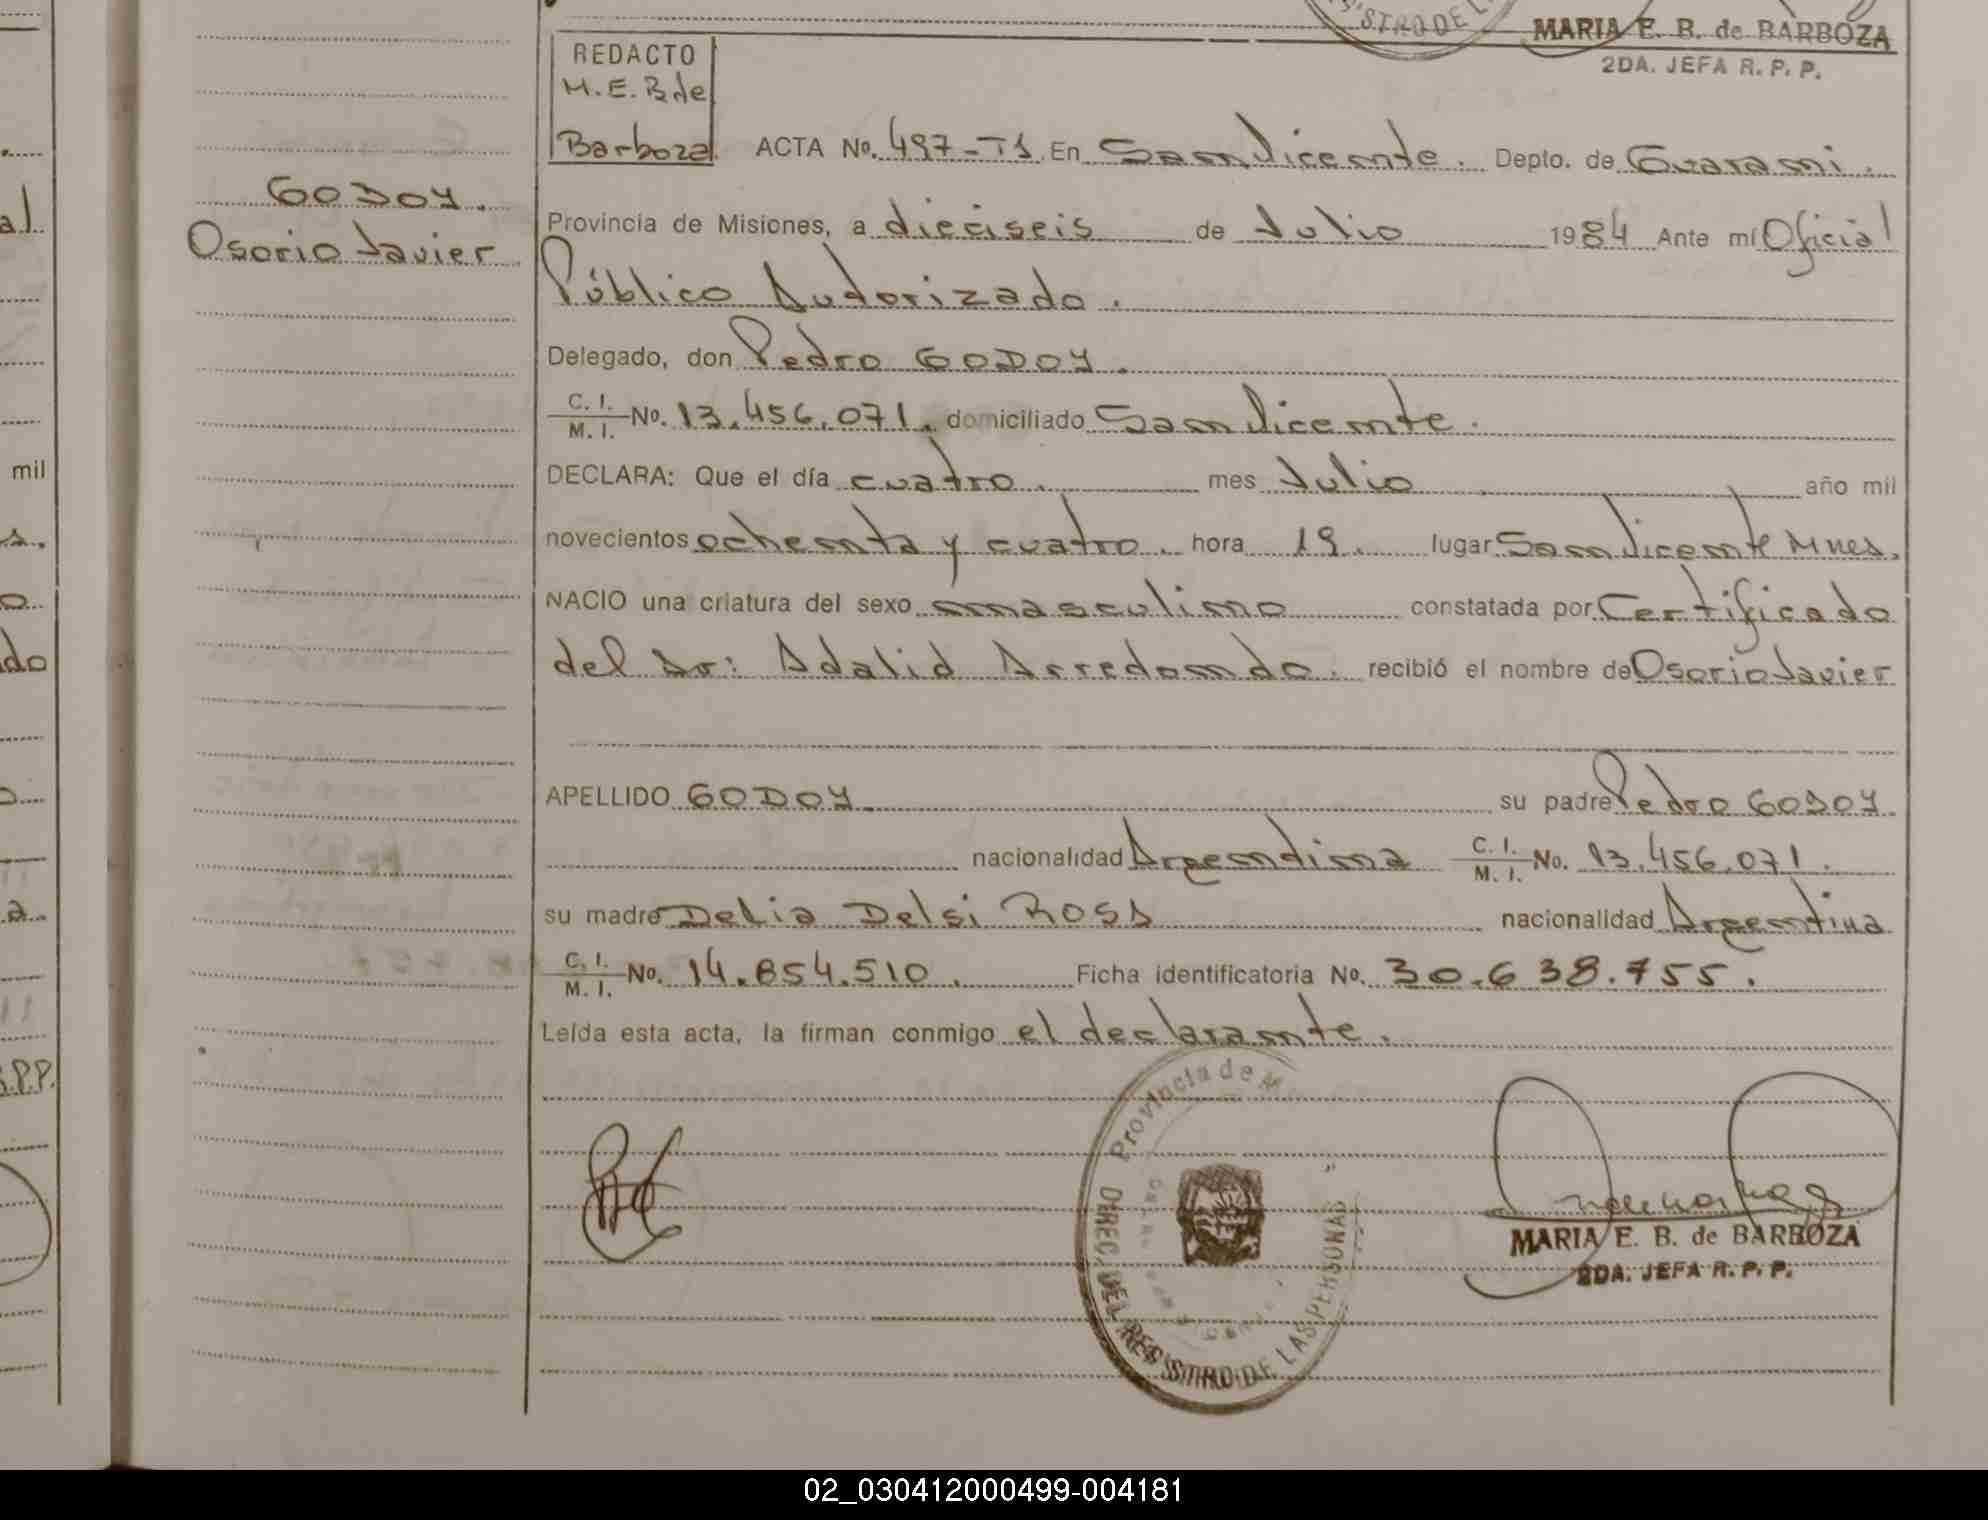 MARIA E. B. de BARBOZA
2DA. JEFA R. P. P.
REDACTO
M.E.B de
Barboza
ACTA No. 497-T1 En San Vicente. Depto. de Guarani.
GODOY.
Osorio Javier
Provincia de Misiones, a dieciseis de Julio 1984 Ante mí Oficial
Público Autorizado.
Delegado, don Pedro GODOY.
C. I. / M. I. No. 13.456.071. domiciliado San Vicente.
DECLARA: Que el día cuatro. mes Julio año mil
novecientos ochenta y cuatro. hora 19. lugar San Vicente Mnes.
NACIO una criatura del sexo masculino constatada por Certificado
del Dr: Adalid Arredondo. recibió el nombre de Osorio Javier
APELLIDO GODOY. su padre Pedro GODOY.
nacionalidad Argentina C. I. / M. I. No. 13.456.071.
su madre Delia Delsi ROSA nacionalidad Argentina
C. I. / M. I. No. 14.854.510. Ficha identificatoria No. 30.638.755.
Leída esta acta, la firman conmigo el declarante.
Provincia de M
DIREC. DEL REGISTRO DE LAS PERSONAS
MARIA E. B. de BARBOZA
2DA. JEFA R. P. P.
mil
02_030412000499-004181